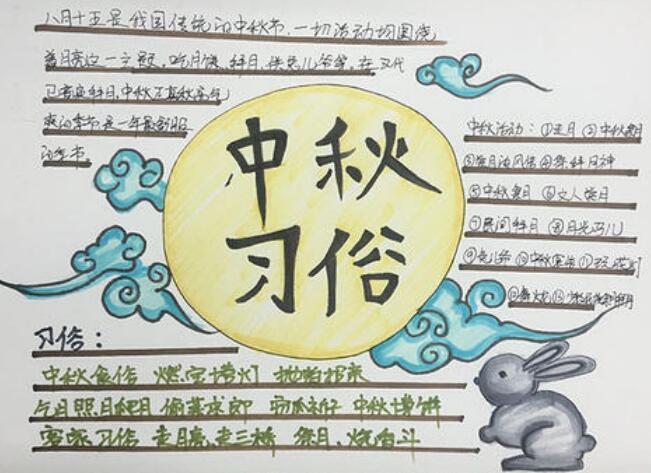 八月十五是我国传统的中秋节,一切活动均围绕
着月亮这一主题,吃月饼、拜月、供兔儿爷等,在汉代
已有 拜月,中秋 秋高气
爽的季节是一年最舒服
的季节
中秋
习俗
中秋活动:① 月 ②中秋
③ ④祭拜月神
⑤中秋赏月 ⑥文人赏月
⑦民间拜月 ⑧月光马儿
⑨兔儿爷 ⑩中秋宴 ⑪玩花灯
习俗:
中秋食俗 燃 灯 抛帕招亲
月照月爬月 偷菜求郎 中秋博饼
客家习俗 走月亮、走三桥 祭月、烧香斗